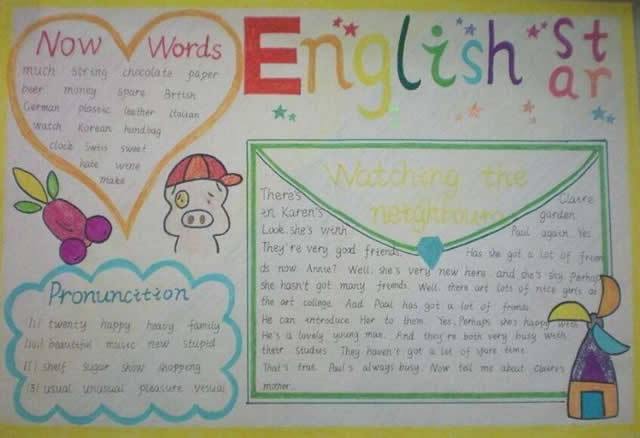 Now Words
much string chocolate paper
beer money spare British
German plastic leather Italian
watch Korean handbag
clock Swiss sweet
hate wine
make
English star
Pronuncition
twenty happy heavy family
beautiful music new stupid
shelf sugar show shopping
usual unusual pleasure vesual
Watching the
neighbours
There's Claire
in Karen's garden
Look. she's with Paul again. Yes.
They're very good friends. Has she got a lot of frien
ds now Annie? Well. she's very new here and she's shy Perhaps
she hasn't got many friends. Well. there art lots of nice girls at
the art college. And Paul has got a lot of friends
He can introduce Her to them. Yes, Perhaps she's happy with
He's a lovely young man. And they're both very busy with
their studies. They haven't got a lot of spare time.
That's true. Paul's always busy. Now tell me about Claire's
mother...